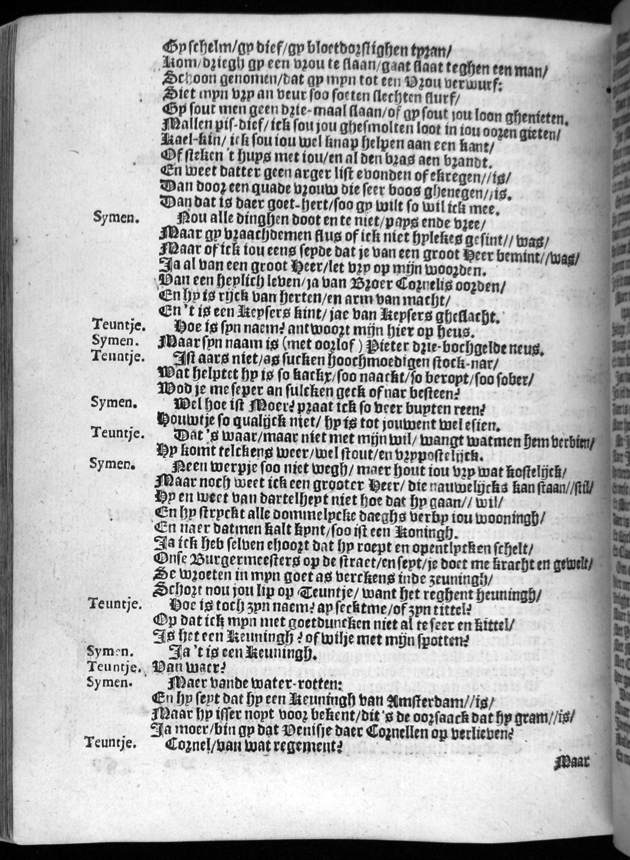 Gy schelm/gy dief/gy bloetdorstighen tyran/
Kom/driegh gy een vrou te slaan/gaat slaat teghen een man/
Schoon genomen/dat gy myn tot een Vrou verwurf:
Siet myn vry an veur soo soeten slechten slurf/
Gy sout men geen drie-maal slaan/of gy sout jou loon ghenieten.
Mallen pis-dief/ick sou jou ghesmolten loot in jou ooren gieten/
Kael-kin/ick sou jou wel knap helpen aan een kant/
Of steken 't huys met jou/en al den bras aen brandt.
En weet datter geen arger list evonden of ekregen//is/
Dan door een quade vrouw die seer boos ghenegen//is.
Dan dat is daer goet-hert/soo gy wilt so wil ick mee.
Symen. Nou alle dinghen doot en te niet/pays ende vree/
Maar gy vraachdemen flus of ick niet hylekes gesint//was/
Maar of ick iou eens seyde dat je van een groot Heer bemint//was/
Ja al van een groot Heer/let vry op mijn woorden.
Van een heylich leven/ja van Broer Cornelis oorden/
En hy is ryck van herten/en arm van macht/
En 't is een Keysers kint/jae van Keysers gheslacht.
Teuntje. Hoe is syn naem? antwoort mijn hier op heus.
Symen. Maar syn naam is (met oorlof) Pieter drie-bochgelde neus.
Teuntje. Ist aars niet/as sucken hoochmoedigen stock-nar/
Wat helptet hy is so kackx/soo naackt/so beropt/soo sober/
Wod je me seper an sulcken geck of nar besteen?
Symen. Wel hoe ist Moer? praat ick so veer buyten reen?
Houwtje so qualijck niet/hy is tot jouwent wel esien.
Teuntje. Dat's waar/maar niet met mijn wil/wangt watmen hem verbien/
Hy komt telckens weer/wel stout/en vrypostelijck.
Symen. Neen werpje soo niet wegh/maer hout iou vry wat kostelijck/
Maar noch weet ick een grooter Heer/die nauwelijcks kan staan//stil/
Hy en weet van dartelheyt niet hoe dat hy gaan//wil/
En hy stryckt alle dommelycke daeghs verby iou wooningh/
En naer datmen kalt kynt/soo ist een Koningh.
Ja ick heb selven ehoort dat hy roept en opentlycken schelt/
Onse Burgermeesters op de straet/en seyt/je doet me kracht en gewelt/
Se vroeten in myn goet as verckens inde zeuningh/
Schort nou jou lip op Teuntje/want het reghent heuningh/
Teuntje. Hoe is toch zyn naem? ay secktme/of zyn tittel?
Op dat ick myn met goetduncken niet al te seer en kittel/
Is het een Keuningh? of wilje met mijn spotten?
Symen. Ja 't is een Keuningh.
Teuntje. Van waer?
Symen. Maer vande water-rotten:
En hy seyt dat hy een Keuningh van Amsterdam//is/
Maar hy isser noyt voor bekent/dit's de oorsaack dat hy gram//is/
Ja moer/bin gy dat Venisje daer Cornellen op verlieven?
Teuntje. Cornel/van wat regement?
Maar